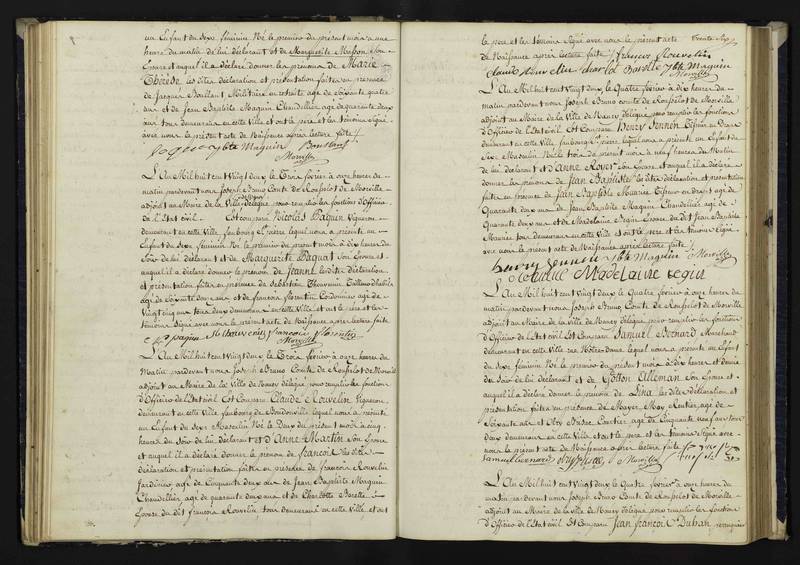 un Enfant du Sexe féminin Né le premier du présent mois à une
heure du matin de lui déclarant et de Marguerite Masson Son
Epouse et auquel il a déclaré donner les prénoms de Marie
Thérèse les dites déclaration et présentation faites en présence
de Jacques Boullant Militaire en retraite agé de Soixante quatre
ans et de Jean Baptiste Maguin Chandellier agé de quarante deux
ans tous demeurant en cette Ville et ont le père et les témoins Signé
avec nous le présent acte de Naissance après lecture faite
jbte Maguin
Morville
L'An Mil huit cent Vingt deux le Trois février à onze heures du
matin pardevant nous Joseph Bruno Comte de Rouselot de Morville
adjoint au Maire de la Ville de Nancy délégué pour remplir les fonctions d'Officier
de l'Etat civil. Est comparu Nicolas Paquin Vigneron
demeurant en cette Ville faubourg St Pierre lequel nous a présenté un
Enfant du Sexe féminin Né le premier du présent mois à dix heures du
Soir de lui déclarant et de Marguerite Paquat Son Epouse et
auquel il a déclaré donner le prénom de Jeanne les dites déclaration
et présentation faites en présence de Sébastien Thouvenin Tailleur d'habits
agé de Soixante deux ans et de francois florentin Cordonnier agé de
Vingt cinq ans tous deux demeurant en cette Ville et ont le père et les
témoins Signé avec nous le présent acte de Naissance après lecture faite
francois florentin
Morville
L'An Mil huit cent Vingt deux le Trois février à onze heures du
Matin pardevant nous Joseph Bruno Comte de Rouselot de Morville
adjoint au Maire de la Ville de Nancy délégué pour remplir les fonctions
d'Officier de l'Etat civil Est Comparu Claude Rouvelin Vigneron
demeurant en cette Ville faubourg de Boudonville lequel nous a présenté
un Enfant du Sexe Masculin Né le Deux du présent mois à cinq
heures du Soir de lui déclarant et d'Anne Martin Son Epouse
et auquel il a déclaré donner le prénom de françois les dites
déclaration et présentation faites en présence de francois Rouvelin
Jardinier agé de Cinquante deux ans de Jean Baptiste Maguin
Chandellier agé de quarante deux ans et de Charlotte Barelle
Epouse du dit françois Rouvelin tous demeurant en cette Ville et ont
le père et les témoins Signé avec nous le présent acte
de Naissance après lecture faite francois Rouvelin
claude Rouvelin charlot Barelle jbte Maguin
Morville
L'An Mil huit cent Vingt deux le Quatre février à dix heures du
matin pardevant nous Joseph Bruno comte de Rouselot de Morville
adjoint au Maire de la Ville de Nancy délégué pour remplir les fonctions
d'Officier de l'Etat civil Est Comparu Henry Sennen
demeurant en cette Ville faubourg St Pierre lequel nous a présenté un Enfant du
Sexe Masculin Né le trois du présent mois à neuf heures du Matin
de lui déclarant et d'Anne Royer Son Epouse et auquel il a déclaré
donner les prénoms de Jean Baptiste les dites déclaration et présentation
faites en présence de Jean Baptiste Maurice agé de
Quarante deux ans de Jean Baptiste Maguin Chandellier agé de
Quarante deux ans et de Madelaine Epouse du dit Jean Baptiste
Maurice tous demeurant en cette Ville et ont le père et les témoins Signé
avec nous le présent acte de Naissance après lecture faite
henry Sennen jbte Maguin Morville
Madelaine
L'An Mil huit cent Vingt deux le Quatre février à onze heures du
matin pardevant nous Joseph Bruno Comte de Rouselot de Morville
adjoint au Maire de la Ville de Nancy délégué pour remplir les fonctions
d'Officier de l'Etat civil Est Comparu Samuel Bernard Marchand
demeurant en cette Ville rue Nôtre-Dame lequel nous a présenté un Enfant
du Sexe féminin Né le premier du présent mois à dix heures et demie
du Soir de lui déclarant et de Alleman Son Epouse et
auquel il a déclaré donner le prénom de Lina les dites déclaration et
présentation faites en présence de Mayer May Rentier agé de
Soixante ans et Courtier agé de Cinquante neuf ans tous
deux demeurant en cette Ville et ont le père et les témoins Signé avec
nous le présent acte de Naissance après lecture faite
Samuel bernard Morville
L'An Mil huit cent Vingt deux le Quatre février à onze heures du
matin pardevant nous Joseph Bruno Comte de Rouselot de Morville
adjoint au Maire de la Ville de Nancy délégué pour remplir les fonctions
d'Officier de l'Etat civil Est Comparu Jean françois Duhan perruquier